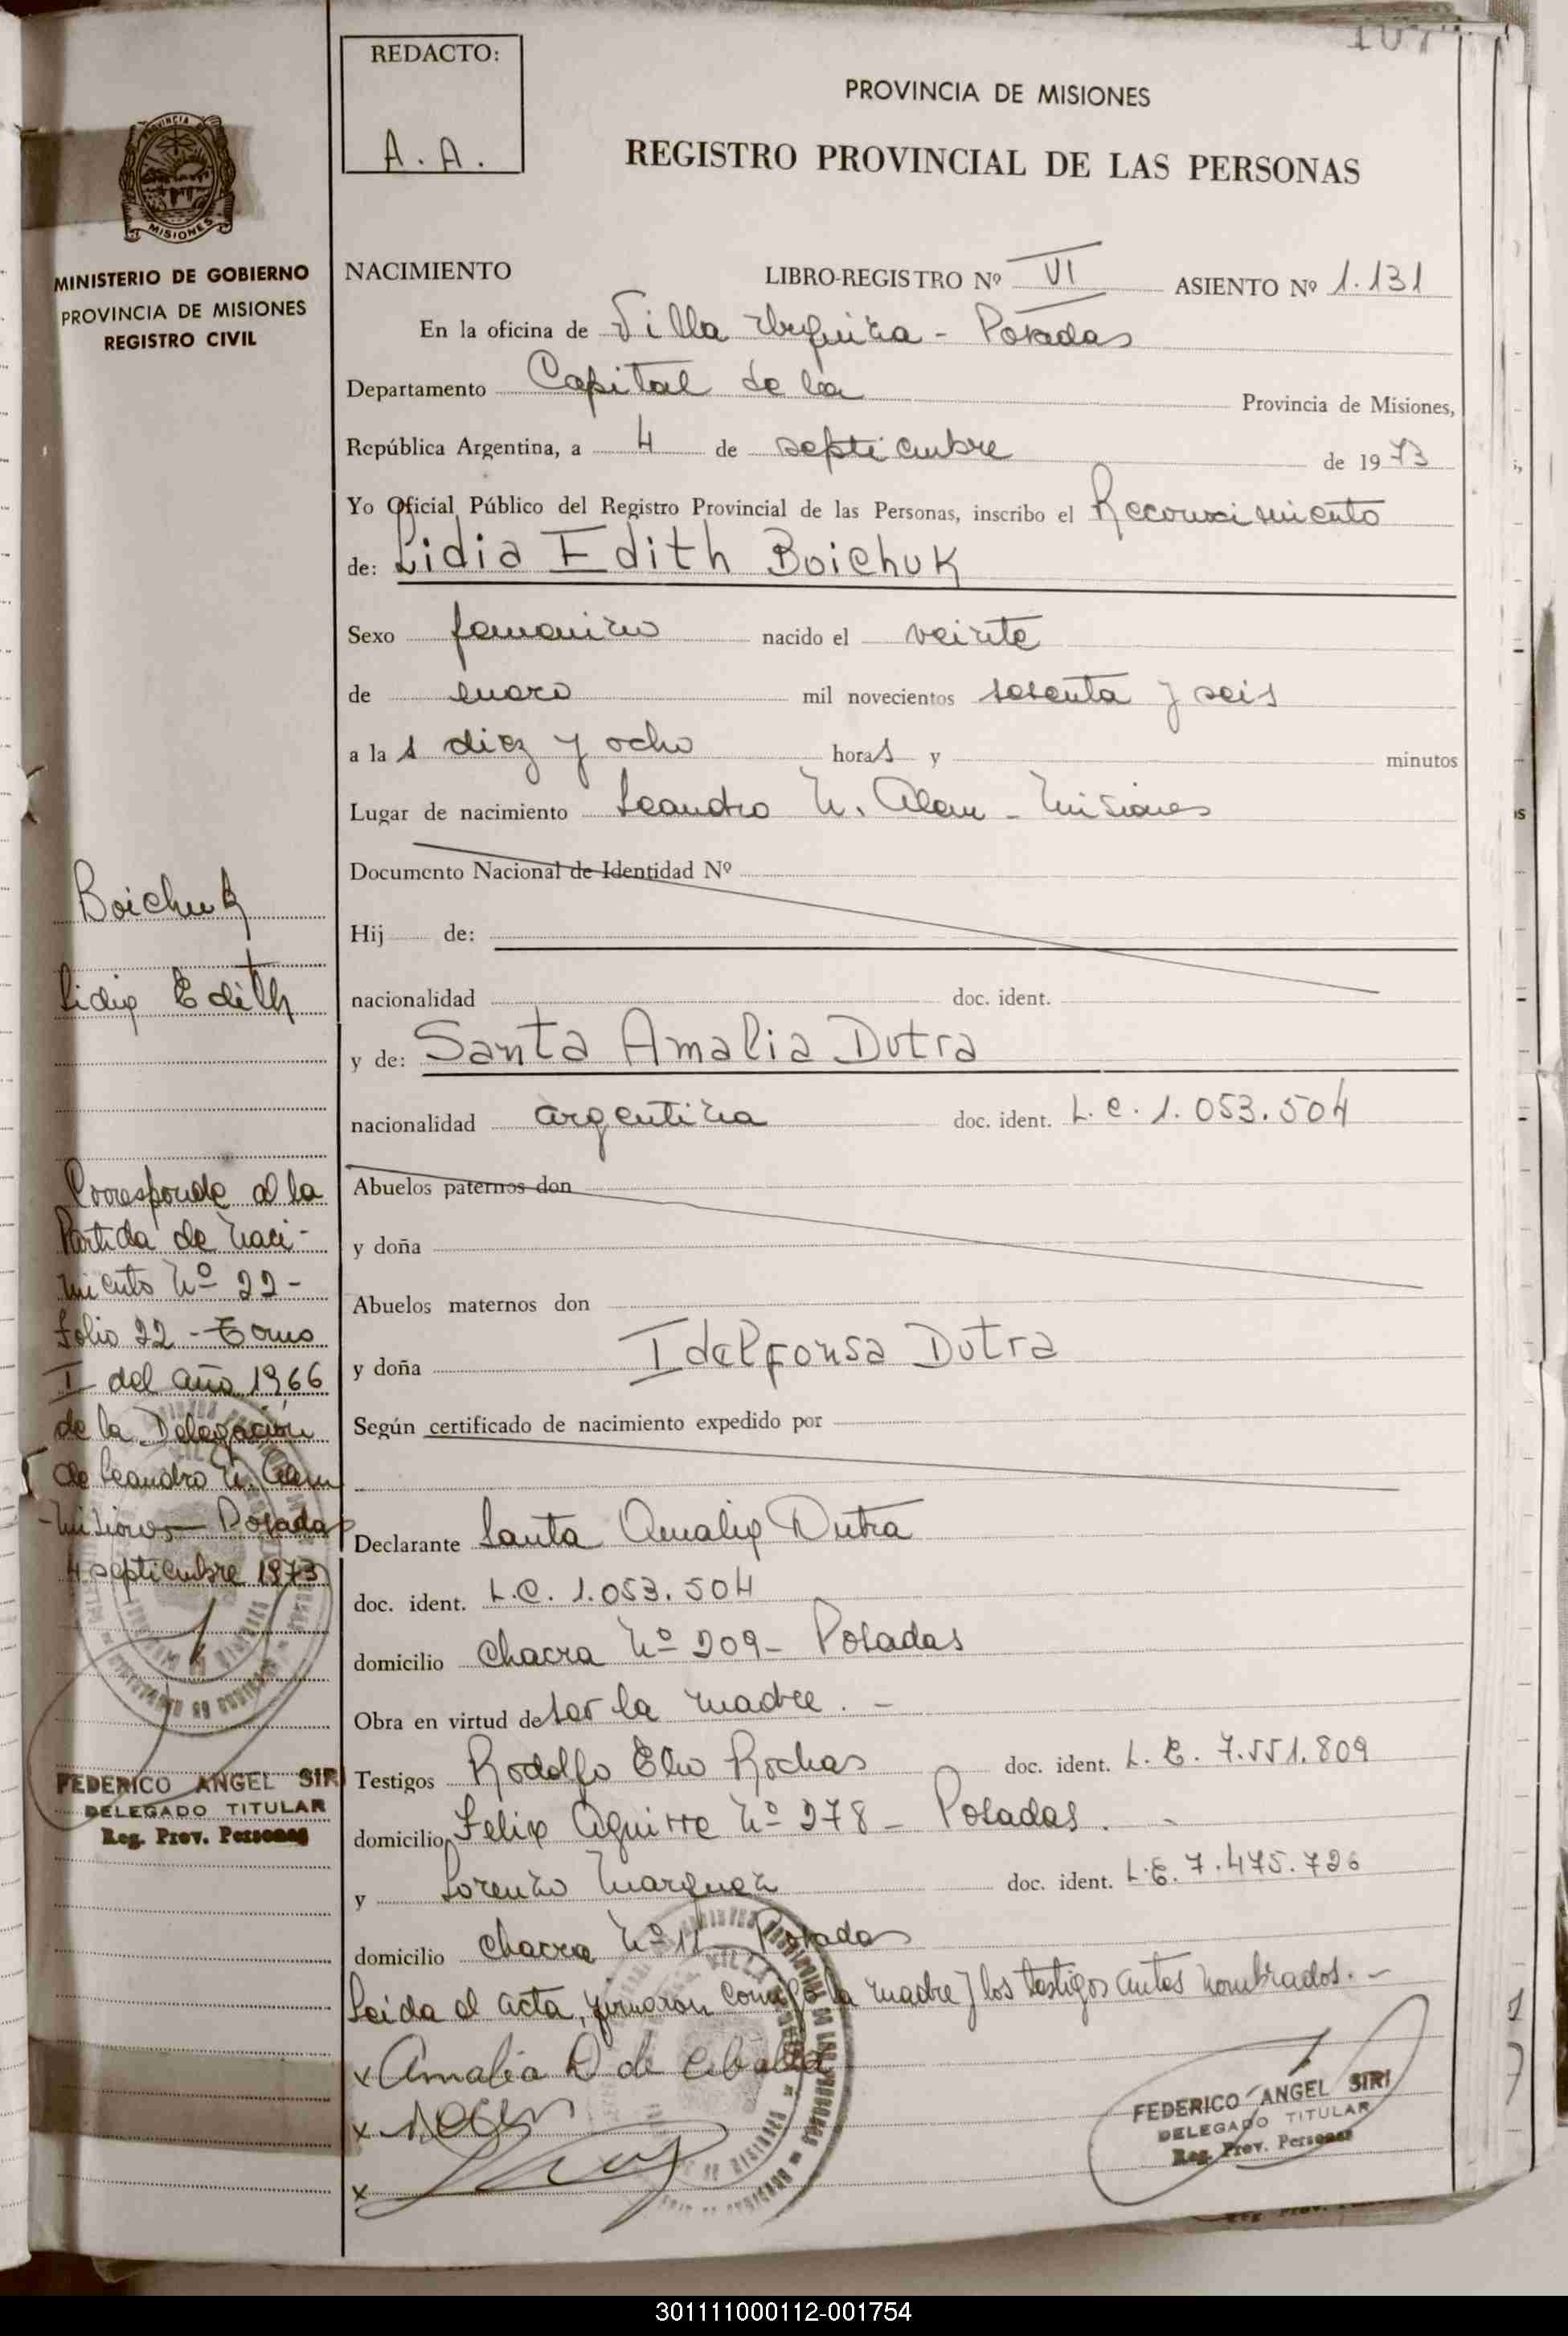 107
REDACTO:
A. A.
PROVINCIA DE MISIONES
REGISTRO PROVINCIAL DE LAS PERSONAS
PROVINCIA DE
MISIONES
MINISTERIO DE GOBIERNO
PROVINCIA DE MISIONES
REGISTRO CIVIL
NACIMIENTO LIBRO-REGISTRO Nº VI ASIENTO Nº 1.131
En la oficina de Villa Urquiza - Posadas
Departamento Capital de la Provincia de Misiones,
República Argentina, a 4 de septiembre de 1973
Yo Oficial Público del Registro Provincial de las Personas, inscribo el Reconocimiento
de: Lidia Edith Boichuk
Sexo femenino nacido el veinte
de enero mil novecientos sesenta y seis
a las diez y ocho horas y minutos
Lugar de nacimiento Leandro N. Alem - Misiones
Documento Nacional de Identidad Nº
Hij de:
nacionalidad doc. ident.
y de: Santa Amalia Dutra
nacionalidad argentina doc. ident. L. C. 1.053.504
Abuelos paternos don
y doña
Abuelos maternos don
y doña Idelfonsa Dutra
Según certificado de nacimiento expedido por
Declarante Santa Amalia Dutra
doc. ident. L.C. 1.053.504
domicilio Chacra Nº 209 - Posadas
Obra en virtud de ser la madre. -
Testigos Rodolfo Elio Rochas doc. ident. L. E. 7.551.809
domicilio Felix Aguirre Nº 278 - Posadas. -
y Lorenzo Marquez doc. ident. L.E. 7.475.726
domicilio Chacra Nº 11 Posadas
Leida el acta, firmaron conmigo la madre y los testigos antes nombrados. -
x Amalia D de
x
x
FEDERICO ANGEL SIRI
DELEGADO TITULAR
Reg. Prov. Personas
Boichuk
Lidia Edith
Corresponde a la
Partida de naci-
miento Nº 22 -
folio 22 - Tomo
I del año 1966
de la Delegación
de Leandro N. Alem
- Misiones - Posadas
4 septiembre 1973
FEDERICO ANGEL SIRI
DELEGADO TITULAR
Reg. Prov. Personas
301111000112-001754